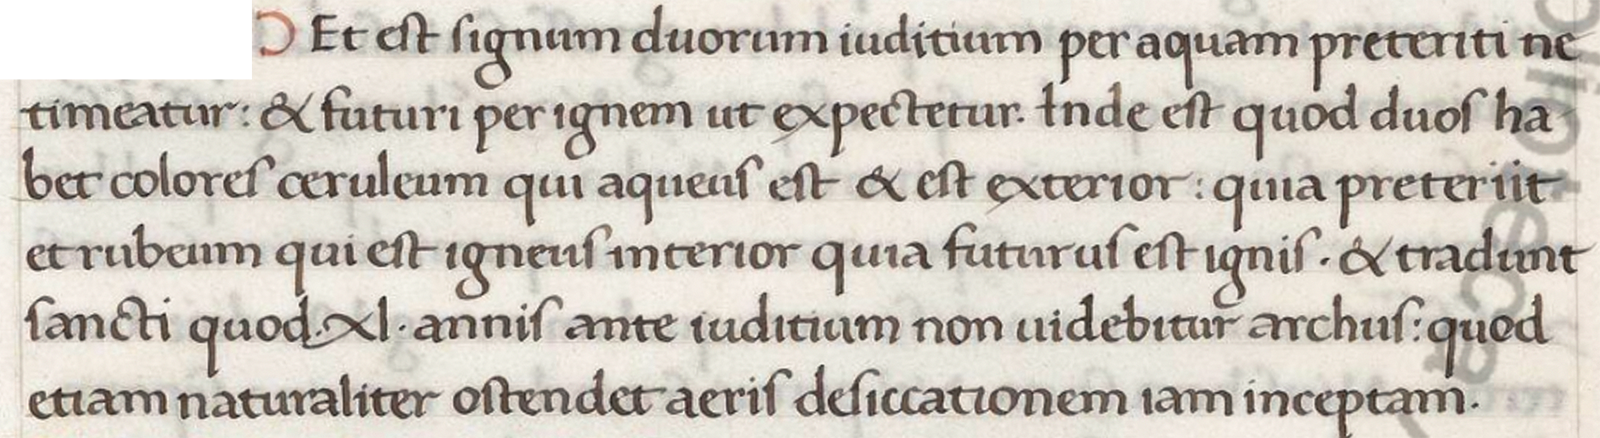 Et est signum duorum iuditium per aquam preteriti ne
timeatur: & futuri per ignem ut expectetur. Inde est quod duos ha
bet colores ceruleum qui aqueus est & est exterior: quia preteriit
et rubeum qui est igneus interior quia futurus est ignis. & tradunt
sancti quod .xl. annis ante iuditium non uidebitur archus: quod
etiam naturaliter ostendet aeris desiccationem iam inceptam.